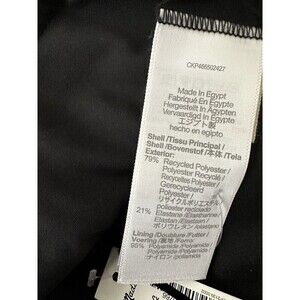 CKP486502427
Made In Egypt
Fabriqué En Egypte
Hergestellt In Ägypten
Vervaardigd In Egypte
エジプト製
hecho en egipto
Shell /Tissu Principal /
Shell /Bovenstof /本体 /Tela
Exterior:
79% Recycled Polyester /
Polyester Recyclé /
Recyceltes Polyester /
Gerecycleerd
Polyester /
リサイクルポリエステル /
poliéster reciclado
21% Elastane /Élasthanne /
Elastan /Elastaan /
ポリウレタン /elastano
Lining /Doublure /Futter /
Voering /裏地 /Forro:
95% Polyamide /Polyamide /
Polyamid /Polyamide /
ナイロン /poliamida